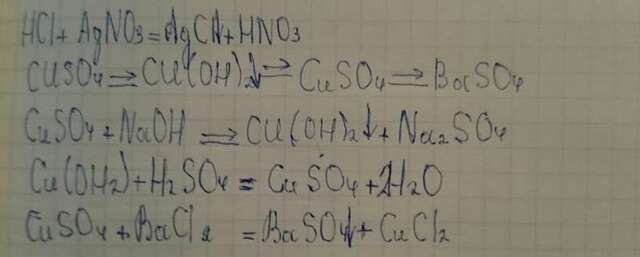 HCl + AgNO3 = AgCl↓ + HNO3
CuSO4 ⇒ Cu(OH)2↓ ⇒ CuSO4 ⇒ BaSO4
CuSO4 + NaOH ⇒ Cu(OH)2↓ + Na2SO4
Cu(OH2) + H2SO4 = CuSO4 + 2H2O
CuSO4 + BaCl2 = BaSO4↓ + CuCl2